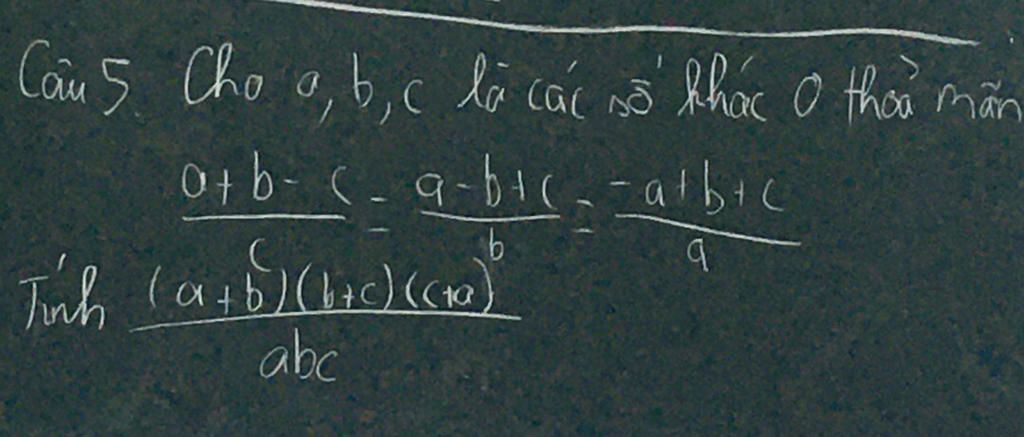 Câu 5. Cho a, b, c là các số khác 0 thoả mãn
a+b-c/c = a-b+c/b = -a+b+c/a
Tính (a+b)(b+c)(c+a)/abc